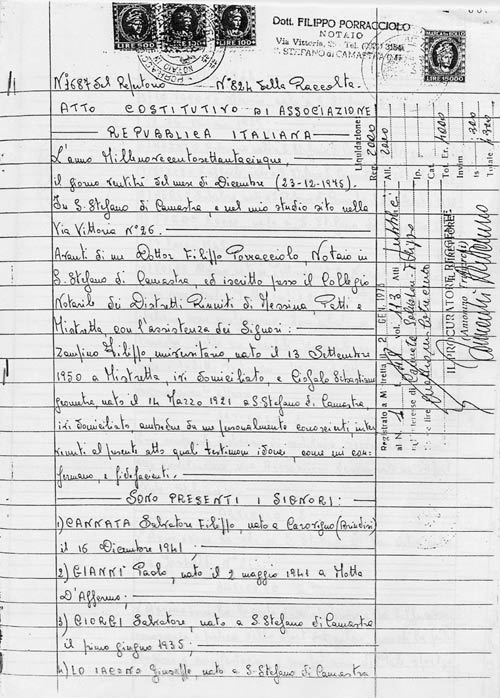 LIRE 500
LIRE 100
LIRE 100
Dott. FILIPPO PORRACCIOLO
NOTAIO
Via Vittoria, 26 Tel.
S. STEFANO di CAMASTRA
MARCA DA BOLLO
LIRE 15000
N° 3687 del Repertorio N° 824 della Raccolta
ATTO COSTITUTIVO DI ASSOCIAZIONE
REPUBBLICA ITALIANA
L'anno Millenovecentosettantacinque,
il giorno ventitré del mese di Dicembre (23-12-1975).
In S. Stefano di Camastra, e nel mio studio sito nella
Via Vittoria N° 26.
Avanti di me Dottor Filippo Porracciolo, Notaio in
S. Stefano di Camastra, ed iscritto presso il Collegio
Notarile dei Distretti Riuniti di Messina, Patti e
Mistretta con l'assistenza dei Signori:
Zampino Filippo, universitario, nato il 13 Settembre
1950 a Mistretta, ivi domiciliato, e Ciofalo Sebastiano
geometra nato il 14 Marzo 1921 a S. Stefano di Camastra,
ivi domiciliato, ambedue da me personalmente conosciuti, inter
venuti al presente atto quali testimoni idonei, come mi con-
fermano, e fidefacienti.
SONO PRESENTI I SIGNORI:
1) CANNATA Salvatore Filippo, nato a Carovigno (Brindisi)
il 16 Dicembre 1941;
2) GIANNÌ Paolo, nato il 2 maggio 1941 a Motta
D'Affermo;
3) GIORGI Salvatore, nato a S. Stefano di Camastra
il primo giugno 1935;
4) LO IACONO Giuseppe, nato a S. Stefano di Camastra
Registrato a Mistretta 2 GEN. 1976
al N. vol. 113 Atti Pubblici
Liquidazione
Reg. 2000
All. 2000
Ip.
Cat.
Tot. Er. 4000
Invim
Is 320
Totale 4320
IL PROCURATORE REGGENTE